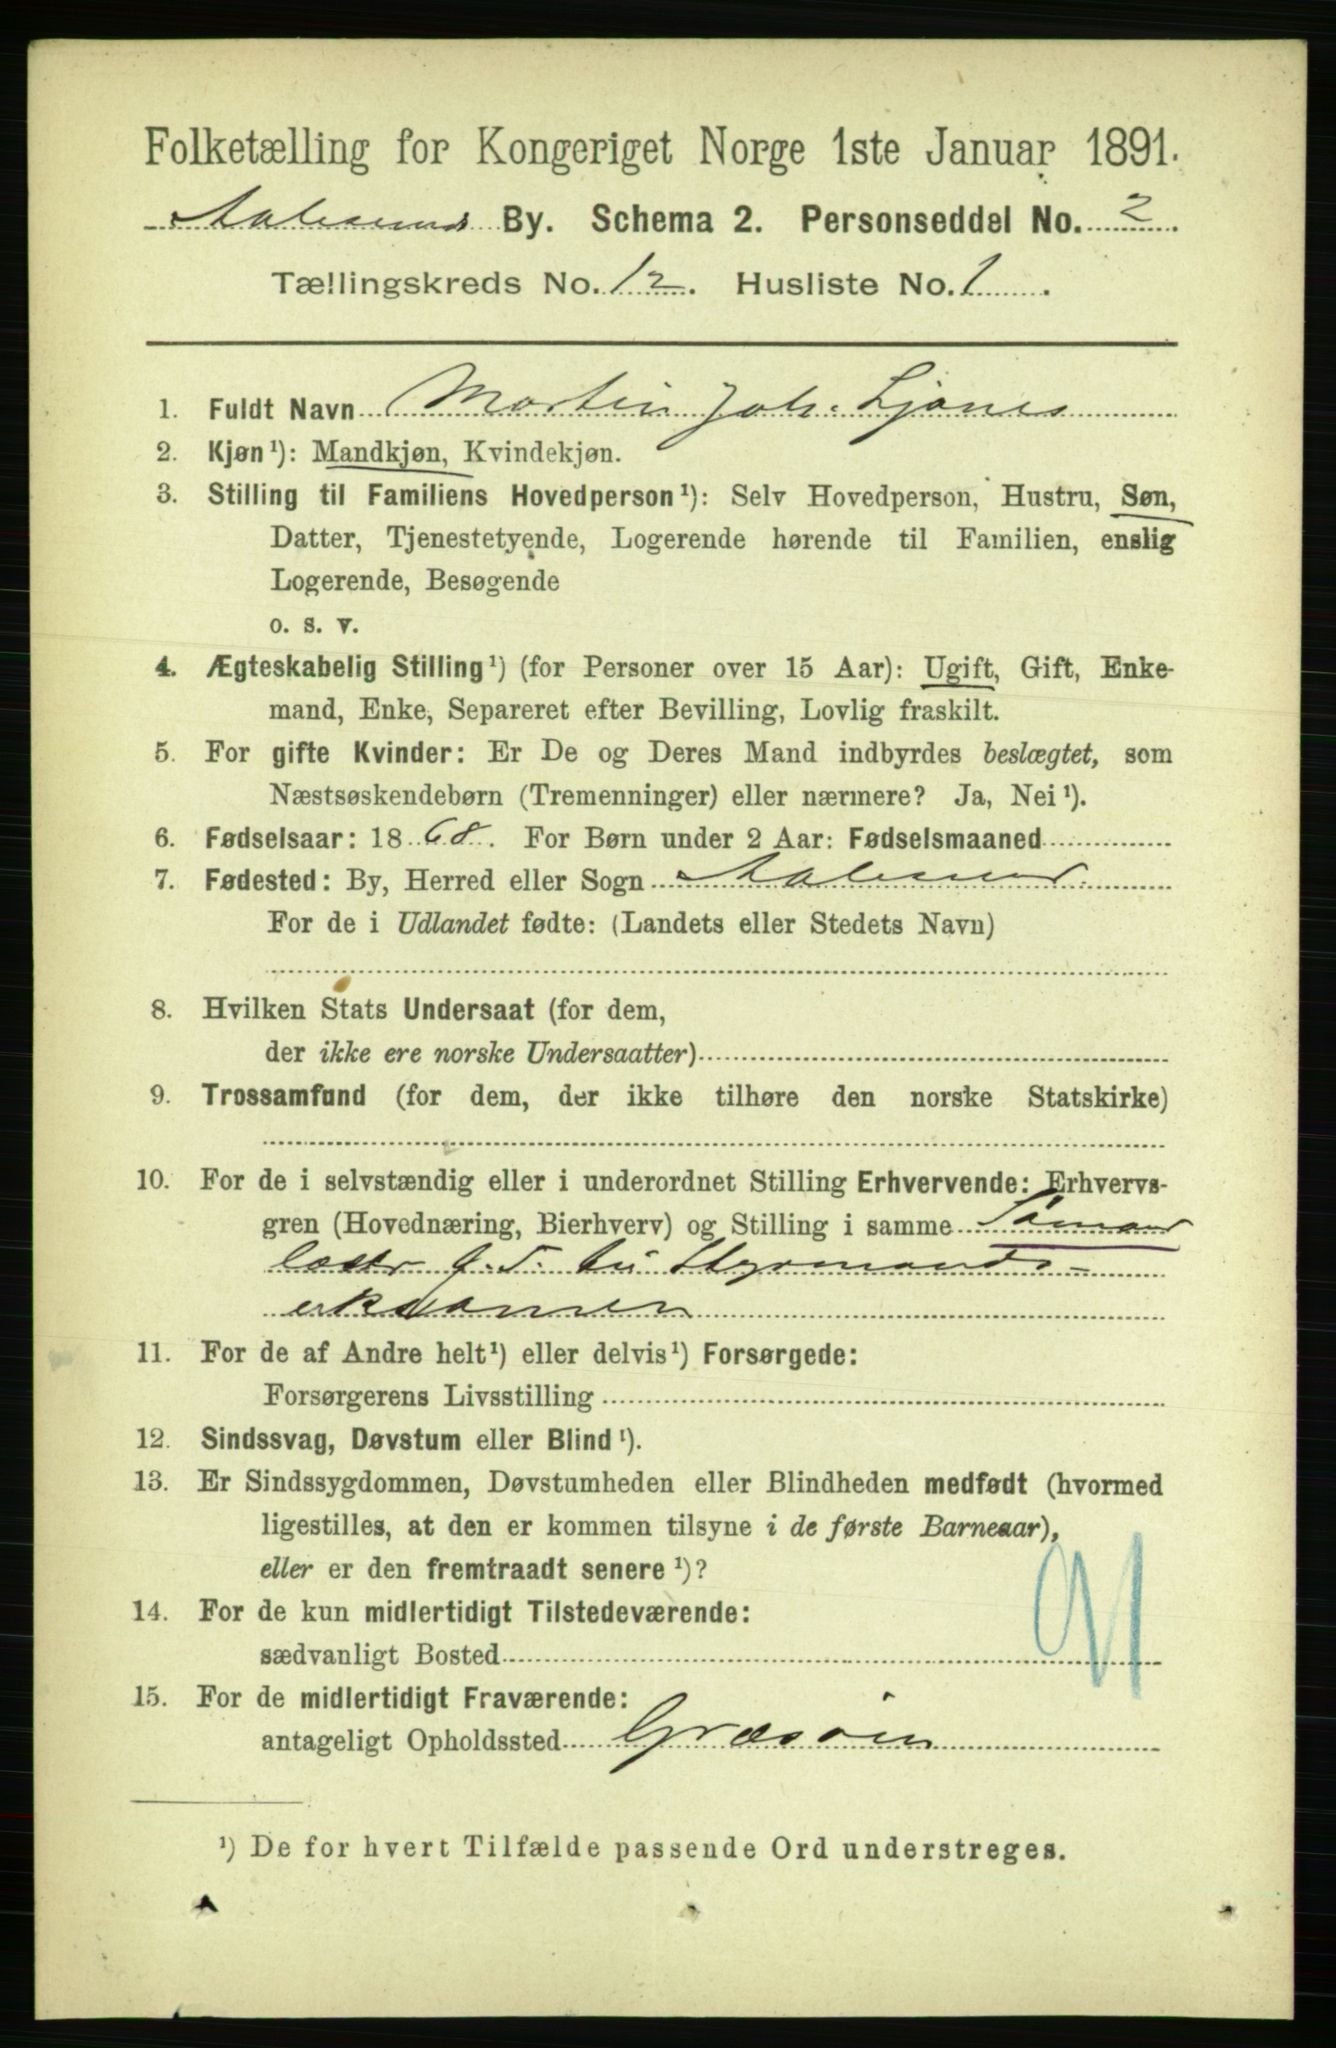 Folketælling for Kongeriget Norge 1ste Januar 1891.
Aalesund By. Schema 2. Personseddel No. 2.
Tællingskreds No. 12. Husliste No. 1.
1. Fuldt Navn Martin Joh. Ljönes
2. Kjøn¹): Mandkjøn, Kvindekjøn.
3. Stilling til Familiens Hovedperson¹): Selv Hovedperson, Hustru, Søn,
Datter, Tjenestetyende, Logerende hørende til Familien, enslig
Logerende, Besøgende
o. s. v.
4. Ægteskabelig Stilling¹) (for Personer over 15 Aar): Ugift, Gift, Enke-
mand, Enke, Separeret efter Bevilling, Lovlig fraskilt.
5. For gifte Kvinder: Er De og Deres Mand indbyrdes beslægtet, som
Næstsøskendebørn (Tremenninger) eller nærmere? Ja, Nei¹).
6. Fødselsaar: 1868. For Børn under 2 Aar: Fødselsmaaned
7. Fødested: By, Herred eller Sogn Aalesund
For de i Udlandet fødte: (Landets eller Stedets Navn)
8. Hvilken Stats Undersaat (for dem,
der ikke ere norske Undersaatter)
9. Trossamfund (for dem, der ikke tilhøre den norske Statskirke)
10. For de i selvstændig eller i underordnet Stilling Erhvervende: Erhvervs-
gren (Hovednæring, Bierhverv) og Stilling i samme Sömand
læser f. T. til Styrmands-
eksamen
11. For de af Andre helt¹) eller delvis¹) Forsørgede:
Forsørgerens Livsstilling
12. Sindssvag, Døvstum eller Blind¹).
13. Er Sindssygdommen, Døvstumheden eller Blindheden medfødt (hvormed
ligestilles, at den er kommen tilsyne i de første Barneaar),
eller er den fremtraadt senere¹)?
14. For de kun midlertidigt Tilstedeværende:
sædvanligt Bosted
15. For de midlertidigt Fraværende:
antageligt Opholdssted
¹) De for hvert Tilfælde passende Ord understreges.